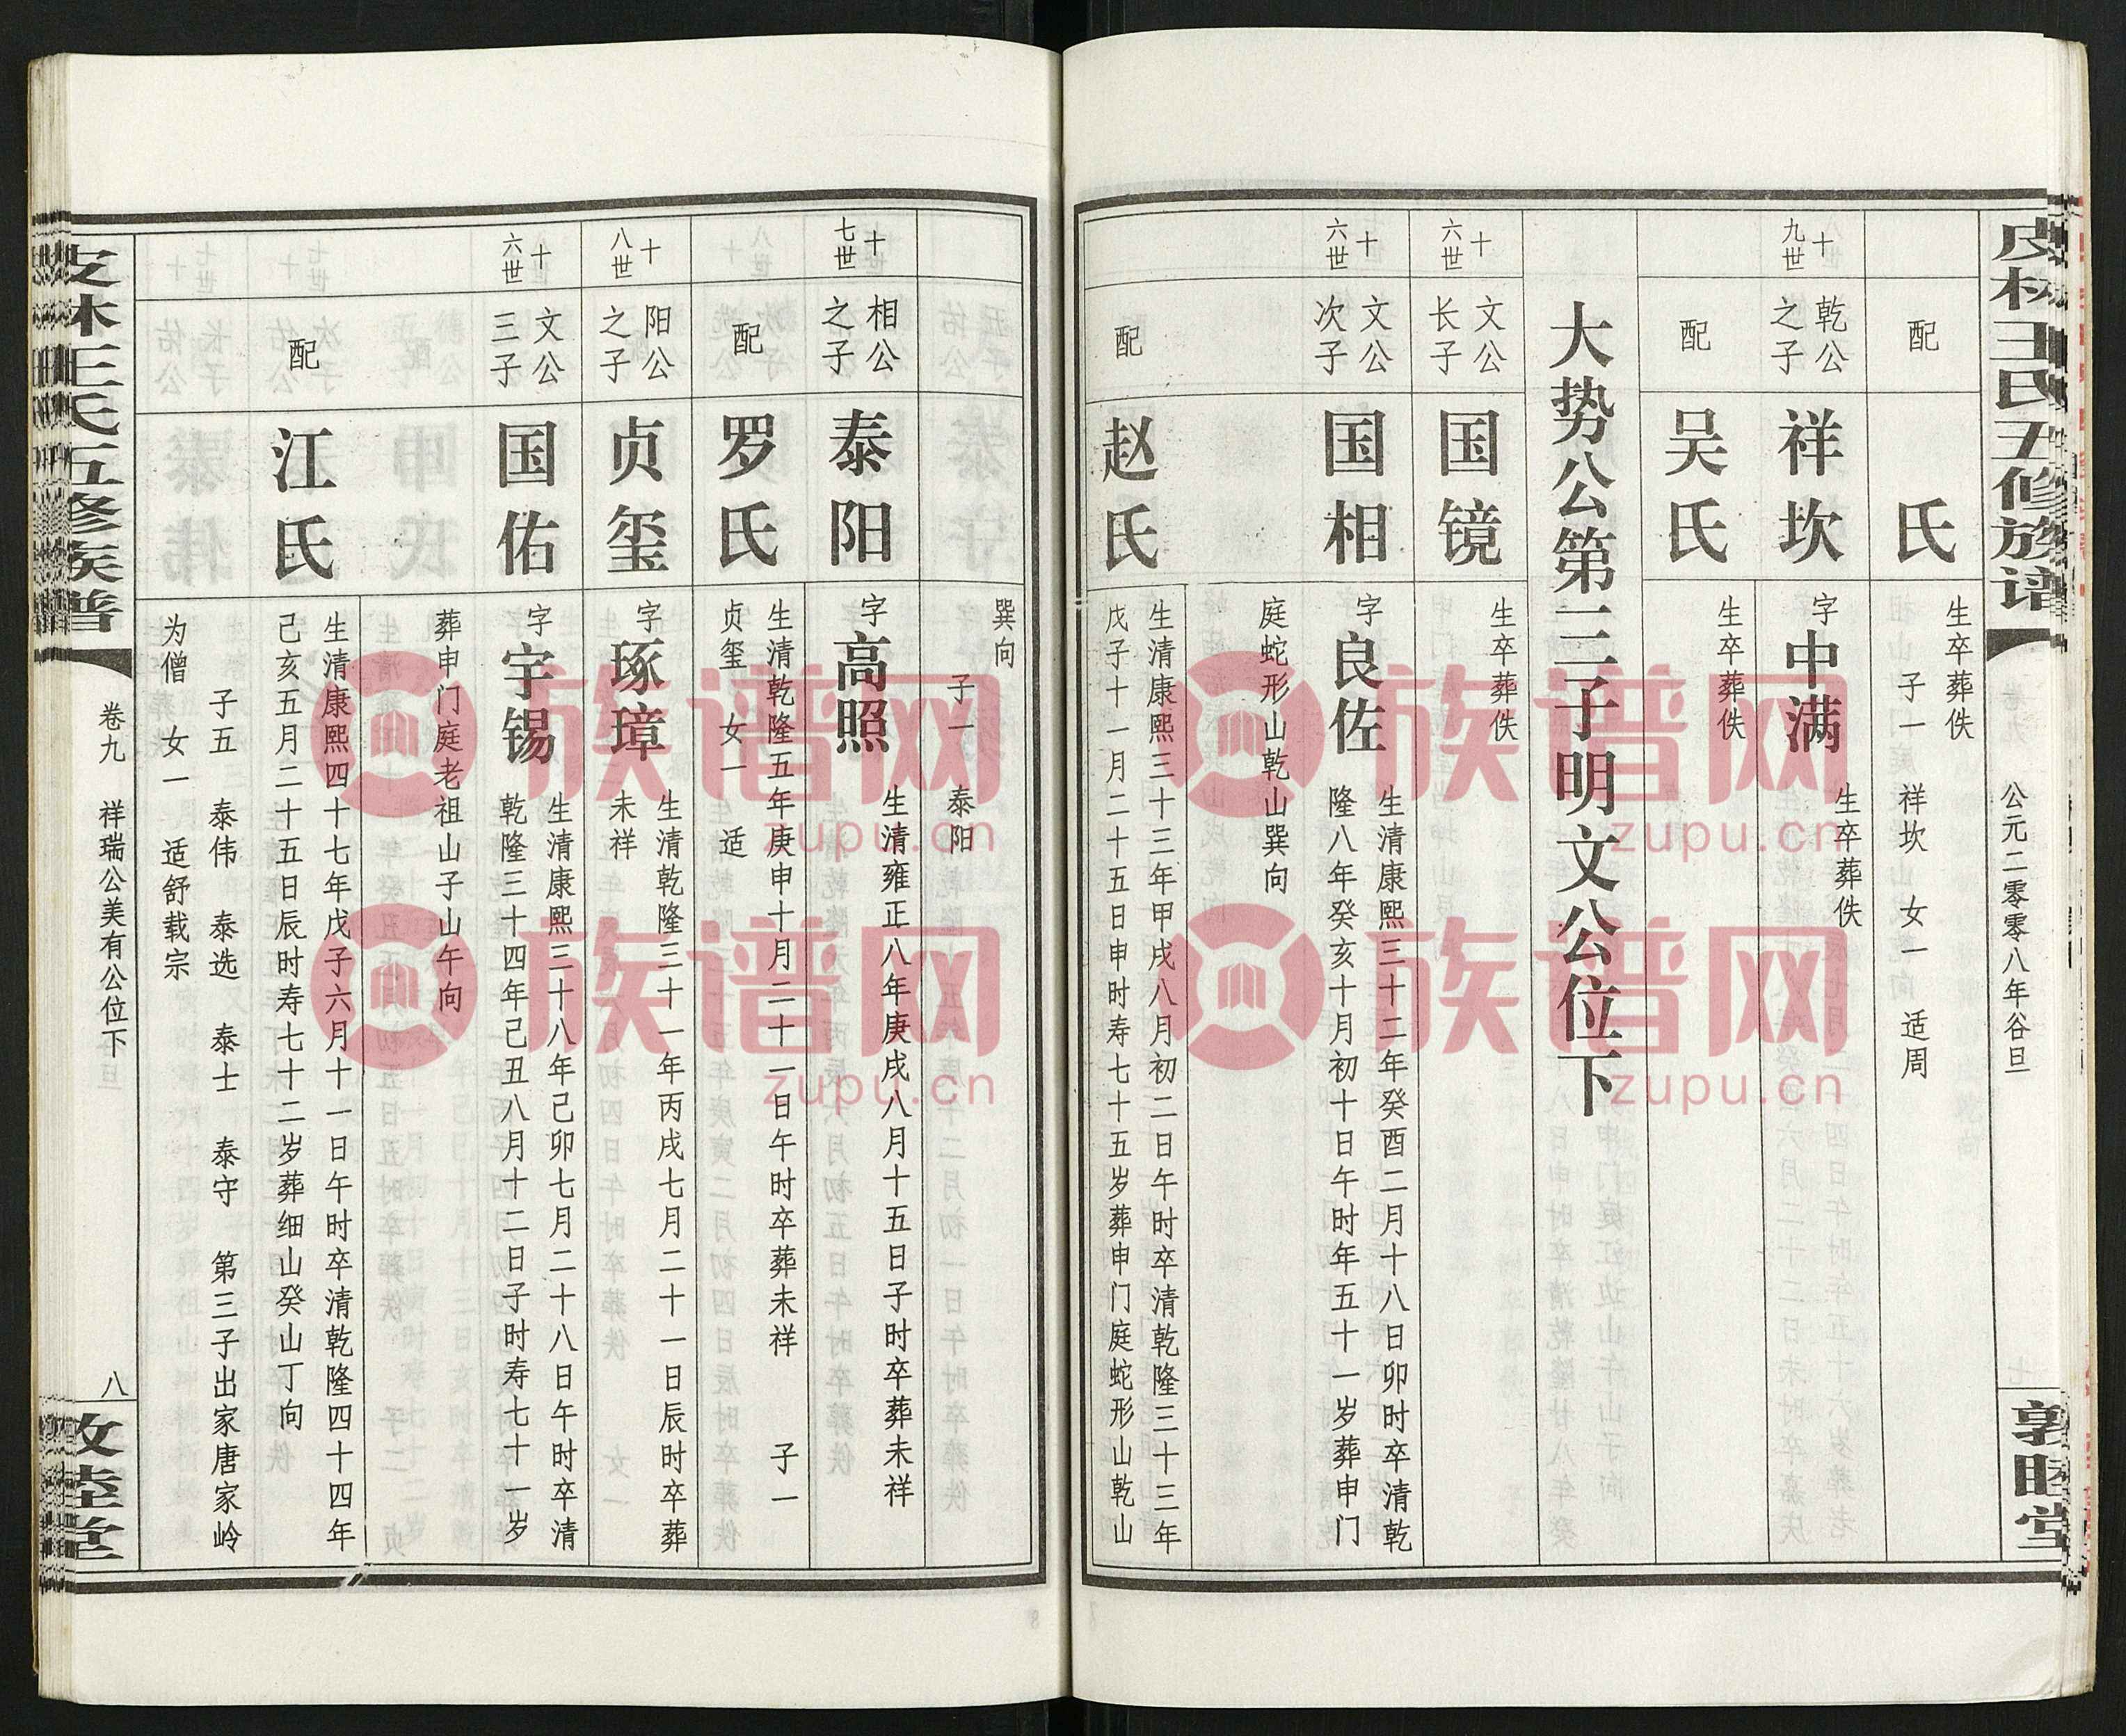 皮林王氏五修族谱
公元二零零八年谷旦
敦睦堂
配
氏
生卒葬佚
子一 祥坎 女一 适周
十九世
乾公之子
祥坎
字中满
生卒葬佚
配
吴氏
生卒葬佚
大势公第三子明文公位下
十六世
文公长子
国镜
生卒葬佚
十六世
文公次子
国相
字良佐
生清康熙三十二年癸酉二月十八日卯时卒清乾
隆八年癸亥十月初十日午时年五十一岁葬申门
庭蛇形山乾山巽向
配
赵氏
生清康熙三十三年甲戌八月初二日午时卒清乾隆三十三年
戊子十一月二十五日申时寿七十五岁葬申门庭蛇形山乾山
巽向
子一 泰阳
十七世
相公之子
泰阳
字高照
生清雍正八年庚戌八月十五日子时卒葬未祥
配
罗氏
生清乾隆五年庚申十月二十一日午时卒葬未祥 子一
贞玺 女一 适
十八世
阳公之子
贞玺
字琢璋
生清乾隆三十一年丙戌七月二十一日辰时卒葬
未祥
十六世
文公三子
国佑
字宇锡
生清康熙三十八年己卯七月二十八日午时卒清
乾隆三十四年己丑八月十二日子时寿七十一岁
葬申门庭老祖山子山午向
配
江氏
生清康熙四十七年戊子六月十一日午时卒清乾隆四十四年
己亥五月二十五日辰时寿七十二岁葬细山癸山丁向
子五 泰伟 泰选 泰士 泰守 第三子出家唐家岭
为僧 女一 适舒载宗
皮林王氏五修族谱
卷九 祥瑞公美有公位下
八
敦睦堂
族谱网
zupu.cn
族谱网
zupu.cn
族谱网
zupu.cn
族谱网
zupu.cn